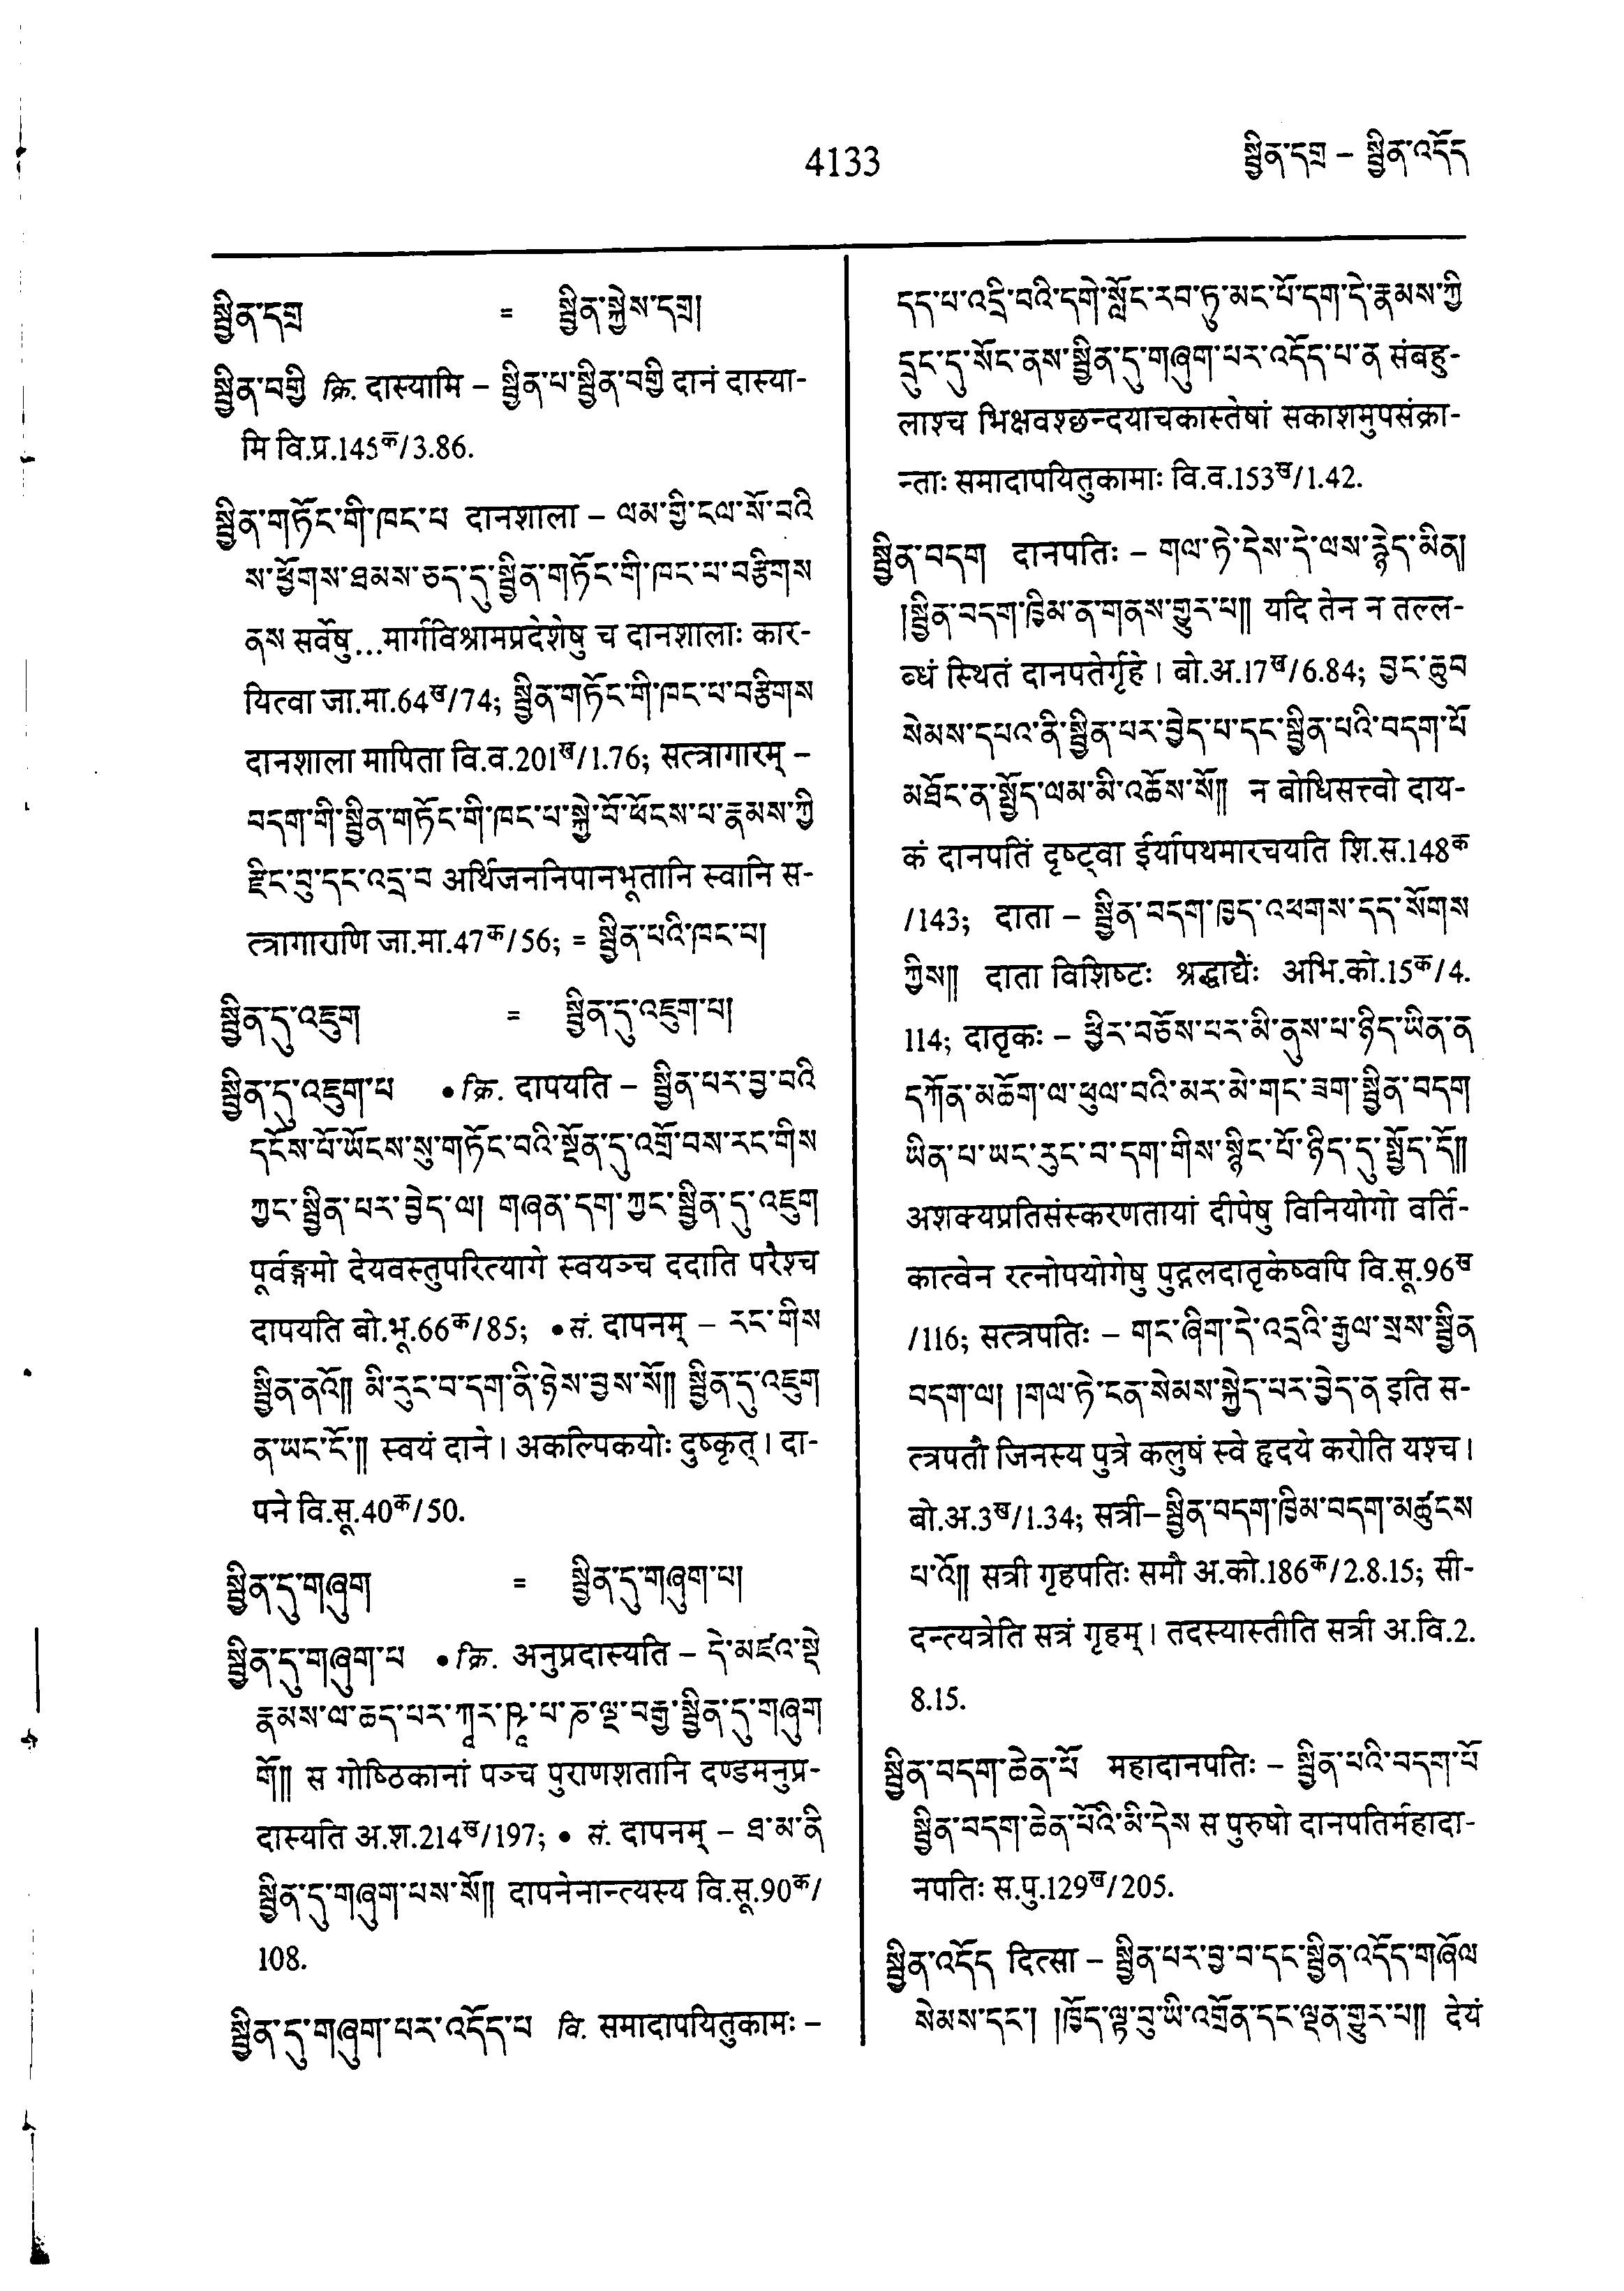 4133
སྦྱིན་དགྲ – སྦྱིན་འདོད
སྦྱིན་དགྲ = སྦྱིན་སྐྱེས་དགྲ།
སྦྱིན་བགྱི क्रि. दास्यामि – སྦྱིན་པ་སྦྱིན་བགྱི दानं दास्या-
मि वि.प्र.145क/3.86.
སྦྱིན་གཏོང་གི་ཁང་པ दानशाला – ལམ་གྱི་ངལ་སོ་བའི
ས་ཕྱོགས་ཐམས་ཅད་དུ་སྦྱིན་གཏོང་གི་ཁང་པ་བརྩིགས
ནས सर्वेषु...मार्गविश्रामप्रदेशेषु च दानशालाः कार-
यित्वा जा.मा.64ख/74; སྦྱིན་གཏོང་གི་ཁང་པ་བརྩིགས
दानशाला मापिता वि.व.201ख/1.76; सत्त्रागारम् –
བདག་གི་སྦྱིན་གཏོང་གི་ཁང་པ་སྐྱེ་བོ་ཕོངས་པ་རྣམས་ཀྱི
རྫིང་བུ་དང་འདྲ་བ अर्थिजननिपानभूतानि स्वानि स-
त्त्रागाराणि जा.मा.47क/56; = སྦྱིན་པའི་ཁང་པ།
སྦྱིན་དུ་འཇུག = སྦྱིན་དུ་འཇུག་པ།
སྦྱིན་དུ་འཇུག་པ • क्रि. दापयति – སྦྱིན་པར་བྱ་བའི
དངོས་པོ་ཡོངས་སུ་གཏོང་བའི་སྔོན་དུ་འགྲོ་བས་རང་གིས
ཀྱང་སྦྱིན་པར་བྱེད་ལ། གཞན་དག་ཀྱང་སྦྱིན་དུ་འཇུག
पूर्वङ्गमो देयवस्तुपरित्यागे स्वयञ्च ददाति परैश्च
दापयति बो.भू.66क/85; • सं. दापनम् – རང་གིས
སྦྱིན་ནའོ།། མི་རུང་བ་དག་ནི་ཉེས་བྱས་སོ།། སྦྱིན་དུ་འཇུག
ན་ཡང་ངོ་།། स्वयं दाने। अकल्पिकयोः दुष्कृत्। दा-
पने वि.सू.40क/50.
སྦྱིན་དུ་གཞུག = སྦྱིན་དུ་གཞུག་པ།
སྦྱིན་དུ་གཞུག་པ • क्रि. अनुप्रदास्यति – དེ་མཛའ་སྡེ
རྣམས་ལ་ཆད་པར་ཀཱར་ཥཱ་པ་ཎ་ལྔ་བརྒྱ་སྦྱིན་དུ་གཞུག
གོ།། स गोष्ठिकानां पञ्च पुराणशतानि दण्डमनुप्र-
दास्यति अ.श.214ख/197; • सं. दापनम् – ཐ་མ་ནི
སྦྱིན་དུ་གཞུག་པས་སོ།། दापनेनान्त्यस्य वि.सू.90क/
108.
སྦྱིན་དུ་གཞུག་པར་འདོད་པ वि. समादापयितुकामः –
དད་པ་འདྲི་བའི་དགེ་སློང་རབ་ཏུ་མང་པོ་དག་དེ་རྣམས་ཀྱི
དྲུང་དུ་སོང་ནས་སྦྱིན་དུ་གཞུག་པར་འདོད་པ་ན संबहु-
लाश्च भिक्षवश्छन्दयाचकास्तेषां सकाशमुपसंक्रा-
न्ताः समादापयितुकामाः वि.व.153ख/1.42.
སྦྱིན་བདག दानपतिः – གལ་ཏེ་དེས་དེ་ལས་རྙེད་མིན།
།སྦྱིན་བདག་ཁྱིམ་ན་གནས་གྱུར་པ།། यदि तेन न तल्ल-
ब्धं स्थितं दानपतेर्गृहे। बो.अ.17ख/6.84; བྱང་ཆུབ
སེམས་དཔའ་ནི་སྦྱིན་པར་བྱེད་པ་དང་སྦྱིན་པའི་བདག་པོ
མཐོང་ན་སྤྱོད་ལམ་མི་འཆོས་སོ།། न बोधिसत्त्वो दाय-
कं दानपतिं दृष्ट्वा ईर्यापथमारचयति शि.स.148क
/143; दाता – སྦྱིན་བདག་ཁྱད་འཕགས་དད་སོགས
ཀྱིས།། दाता विशिष्टः श्रद्धाद्यैः अभि.को.15क/4.
114; दातृकः – ཕྱིར་བཅོས་པར་མི་ནུས་པ་ཉིད་ཡིན་ན
དཀོན་མཆོག་ལ་ཕུལ་བའི་མར་མེ་གང་ཟག་སྦྱིན་བདག
ཡིན་པ་ཡང་རུང་བ་དག་གིས་སྙིང་པོ་ཉིད་དུ་སྤྱོད་དོ།།
अशक्यप्रतिसंस्करणतायां दीपेषु विनियोगो वर्ति-
कात्वेन रत्नोपयोगेषु पुद्गलदातृकेष्वपि वि.सू.96ख
/116; सत्त्रपतिः – གང་ཞིག་དེ་འདྲའི་རྒྱལ་སྲས་སྦྱིན
བདག་ལ། །གལ་ཏེ་ངན་སེམས་སྐྱེད་པར་བྱེད་ན इति स-
त्त्रपतौ जिनस्य पुत्रे कलुषं स्वे हृदये करोति यश्च।
बो.अ.3ख/1.34; सत्री–སྦྱིན་བདག་ཁྱིམ་བདག་མཚུངས
པ་འོ།། सत्री गृहपतिः समौ अ.को.186क/2.8.15; सी-
दन्त्यत्रेति सत्रं गृहम्। तदस्यास्तीति सत्री अ.वि.2.
8.15.
སྦྱིན་བདག་ཆེན་པོ महादानपतिः – སྦྱིན་པའི་བདག་པོ
སྦྱིན་བདག་ཆེན་པོའི་མི་དེས स पुरुषो दानपतिर्महादा-
नपतिः स.पु.129ख/205.
སྦྱིན་འདོད दित्सा – སྦྱིན་པར་བྱ་བ་དང་སྦྱིན་འདོད་གཞོལ
སེམས་དང་། །ཁྱོད་ལྟ་བུ་ཡི་འགྲོན་དང་ལྡན་གྱུར་པ།། देयं